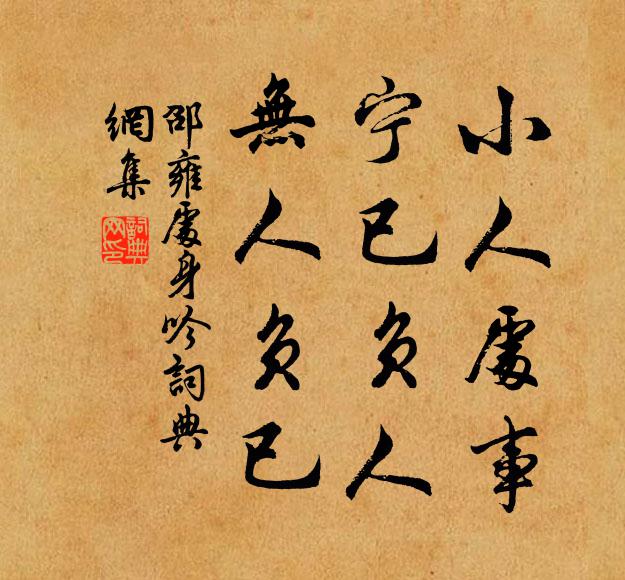 小人處事
宁已負人
無人負已
邵雍處身吟詞典
網集
詞典
网印